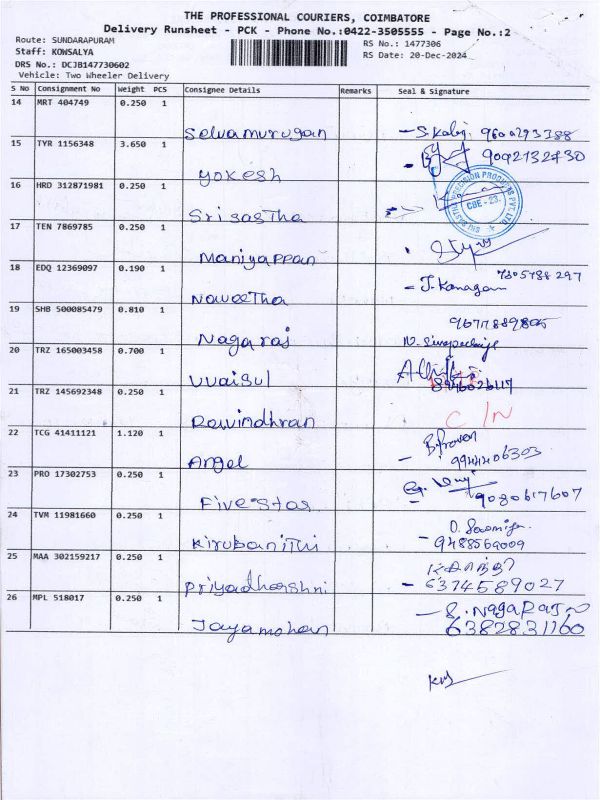 THE PROFESSIONAL COURIERS, COIMBATORE
Delivery Runsheet - PCK - Phone No.:0422-3505555 - Page No.:2
Route: SUNDARAPURAM
RS No.: 1477306
Staff: KOWSALYA
RS Date: 20-Dec-2024
DRS No.: DCJB147730602
Vehicle: Two Wheeler Delivery
S No Consignment No Weight PCS Consignee Details Remarks Seal & Signature
14 MRT 404749 0.250 1
Selvamurugan
15 TYR 1156348 3.650 1
9092132430
Yokesh
16 HRD 312871981 0.250 1
PRECISION PRODUCTS PVT. LTD.
CBE - 23.
Srisastha
17 TEN 7869785 0.250 1
Maniyappan
18 EDQ 12369097 0.190 1
7305788297
Naveetha - J. Kanagan
19 SHB 500085479 0.810 1
Nagaraj
20 TRZ 165003458 0.700 1
Uvaisul 8946026117
21 TRZ 145692348 0.250 1
C/N
Rawindhran
22 TCG 41411121 1.120 1
Angel - 9944406303
23 PRO 17302753 0.250 1
9080617607
Fivestar
24 TVM 11981660 0.250 1
Kirubanithi - 9488569009
25 MAA 302159217 0.250 1
Priyadharshni - 6374589027
26 MPL 518017 0.250 1
- S. NAGARAJ
Jayamohan 6382831160